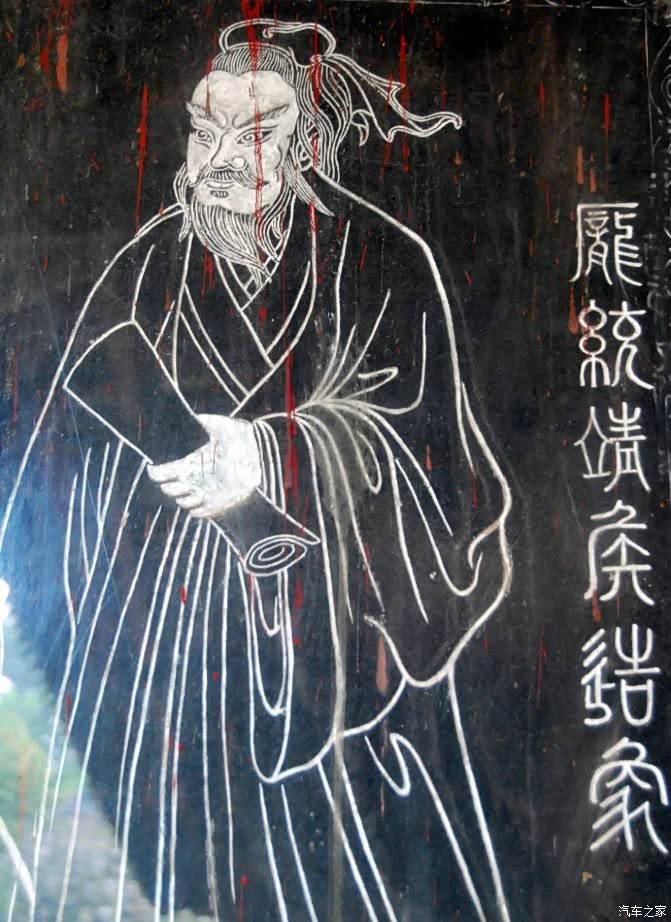 龐統靖侯造象
汽车之家